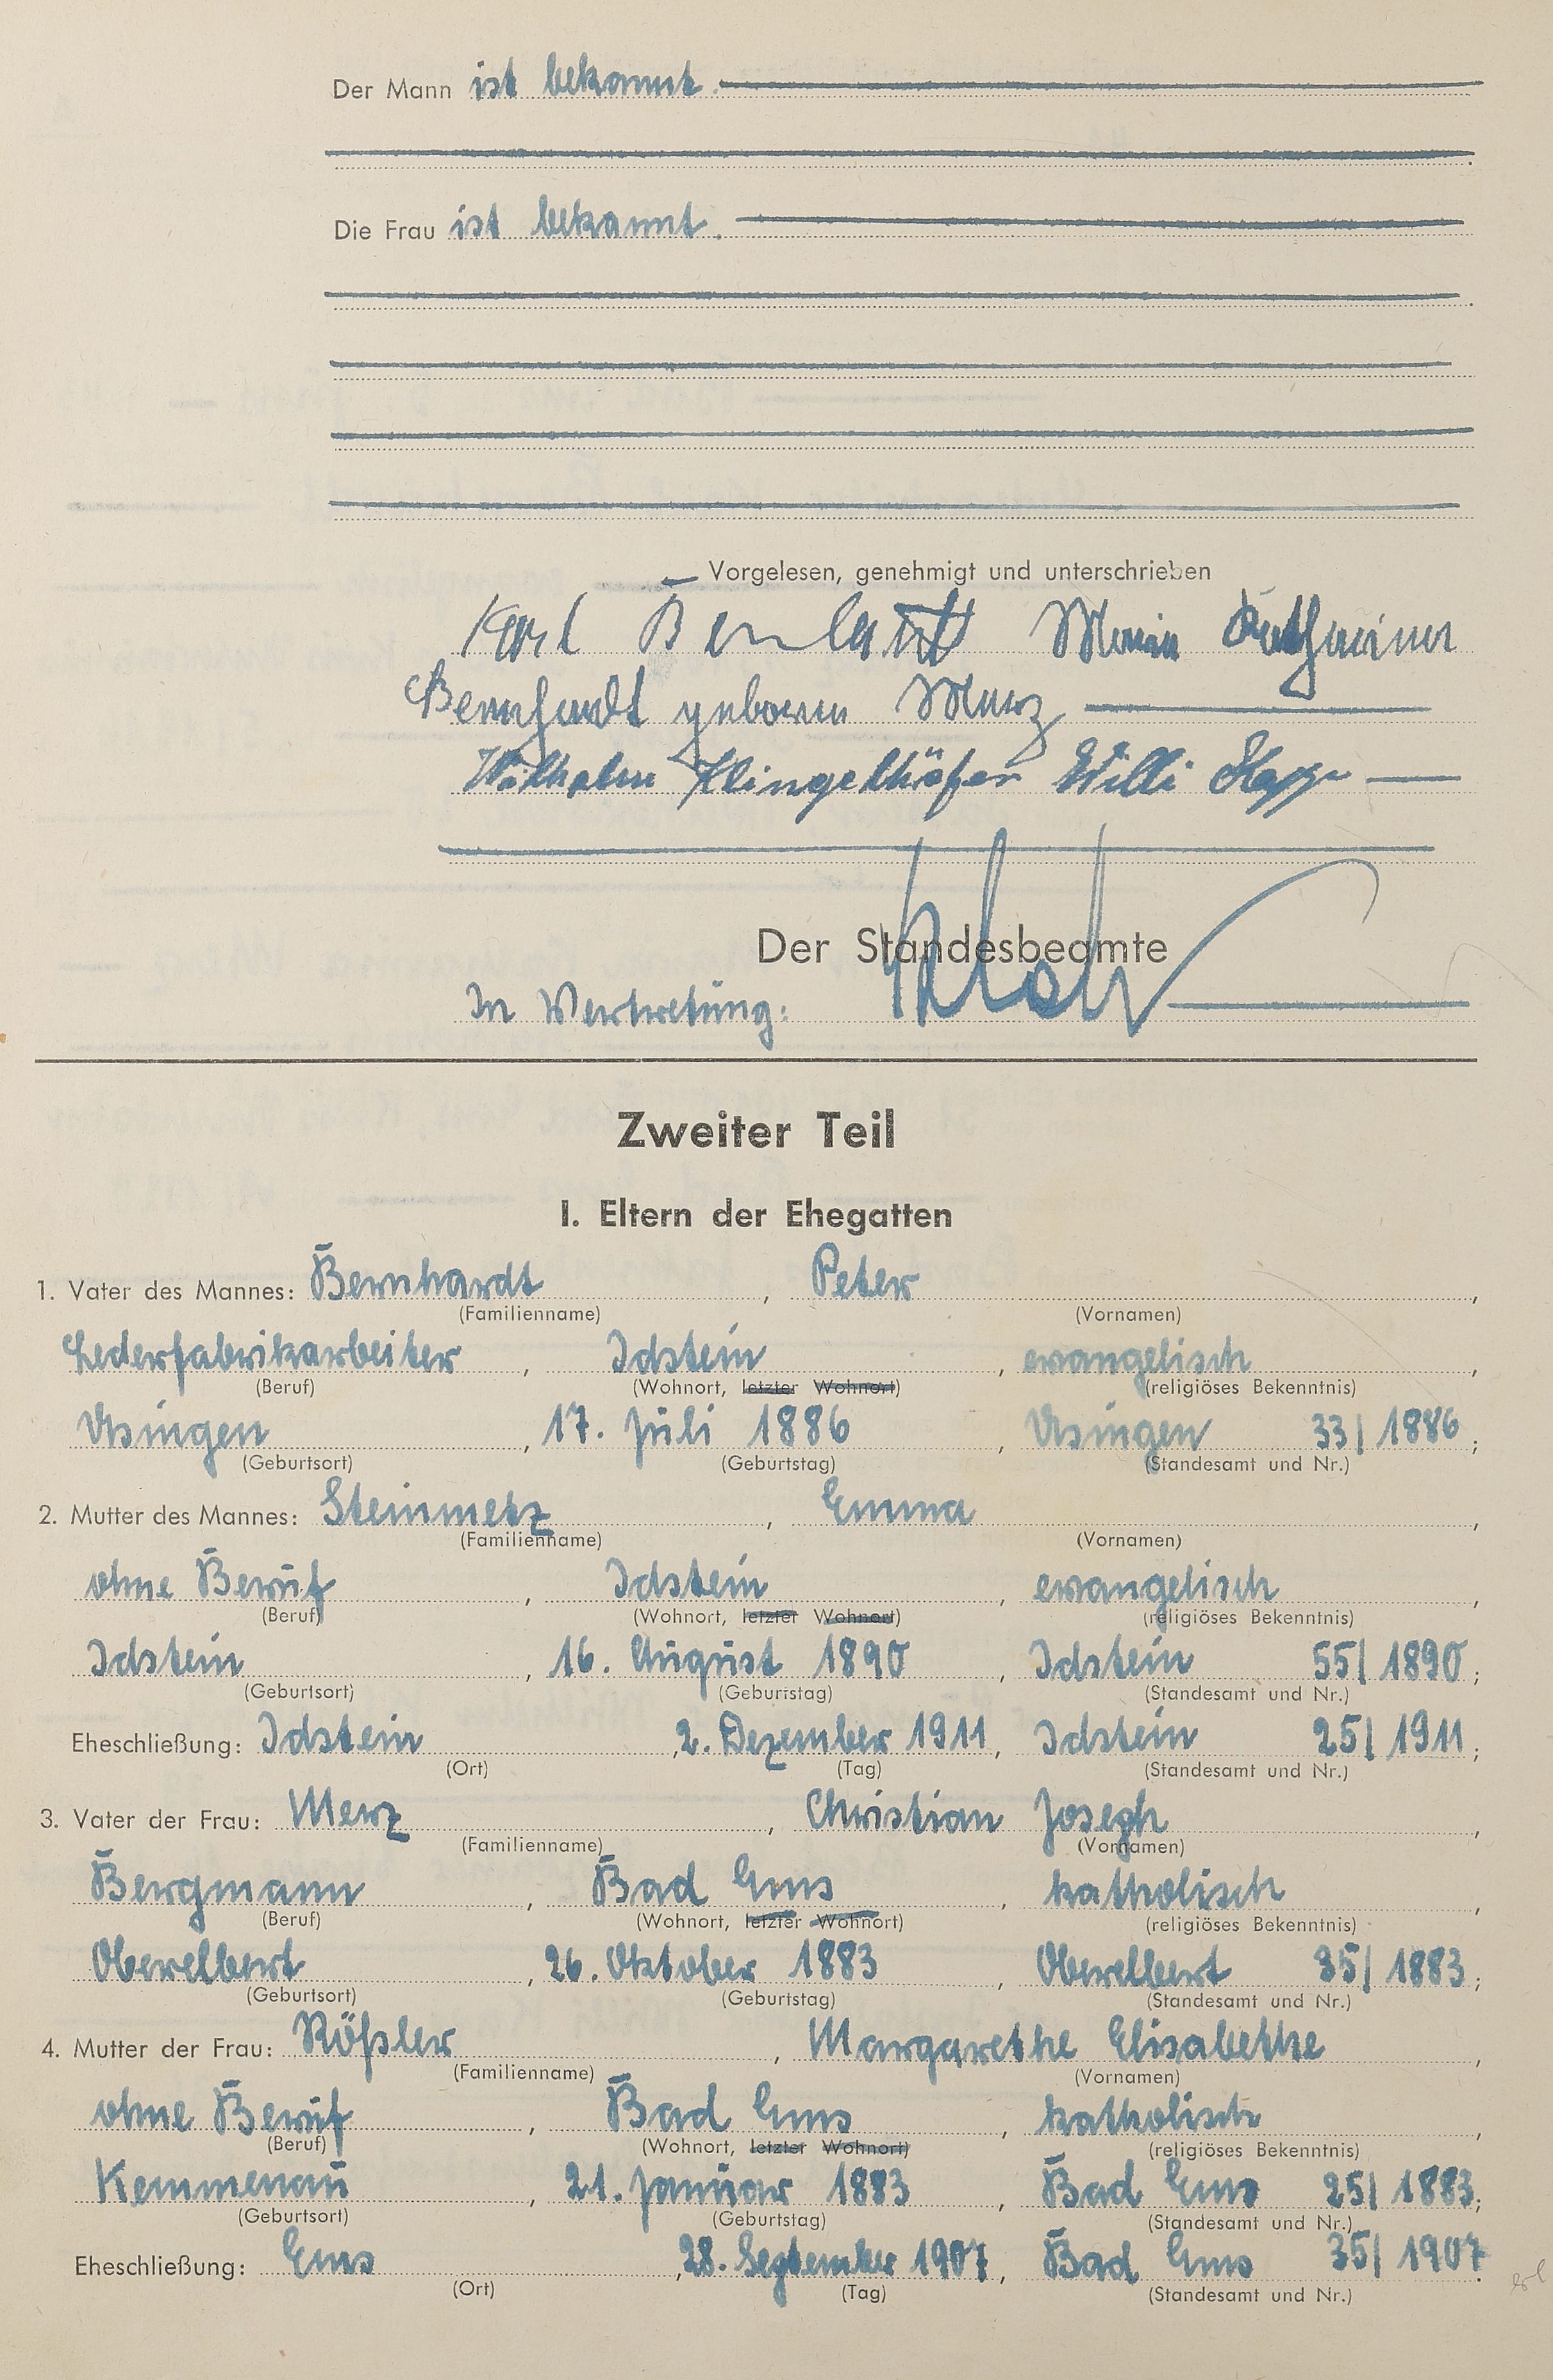 Der Mann ist bekannt.
Die Frau ist bekannt.
Vorgelesen, genehmigt und unterschrieben
Karl Bernhardt Maria Katharina
Bernhardt geborene Merz
Wilhelm Klingelhöfer Willi Happ
Der Standesbeamte
In Vertretung:
Zweiter Teil
I. Eltern der Ehegatten
1. Vater des Mannes: Bernhardt, Peter,
(Familienname) (Vornamen)
Lederfabrikarbeiter, Idstein, evangelisch,
(Beruf) (Wohnort, letzter Wohnort) (religiöses Bekenntnis)
Usingen, 17. Juli 1886, Usingen 33/1886;
(Geburtsort) (Geburtstag) (Standesamt und Nr.)
2. Mutter des Mannes: Steinmetz, Emma,
(Familienname) (Vornamen)
ohne Beruf, Idstein, evangelisch,
(Beruf) (Wohnort, letzter Wohnort) (religiöses Bekenntnis)
Idstein, 16. August 1890, Idstein 55/1890;
(Geburtsort) (Geburtstag) (Standesamt und Nr.)
Eheschließung: Idstein, 2. Dezember 1911, Idstein 25/1911;
(Ort) (Tag) (Standesamt und Nr.)
3. Vater der Frau: Merz, Christian Joseph,
(Familienname) (Vornamen)
Bergmann, Bad Ems, katholisch,
(Beruf) (Wohnort, letzter Wohnort) (religiöses Bekenntnis)
Oberelbert, 26. Oktober 1883, Oberelbert 35/1883;
(Geburtsort) (Geburtstag) (Standesamt und Nr.)
4. Mutter der Frau: Rößler, Margarethe Elisabethe,
(Familienname) (Vornamen)
ohne Beruf, Bad Ems, katholisch,
(Beruf) (Wohnort, letzter Wohnort) (religiöses Bekenntnis)
Kemmenau, 21. Januar 1883, Bad Ems 25/1883;
(Geburtsort) (Geburtstag) (Standesamt und Nr.)
Eheschließung: Ems, 28. September 1907, Bad Ems 35/1907.
(Ort) (Tag) (Standesamt und Nr.)